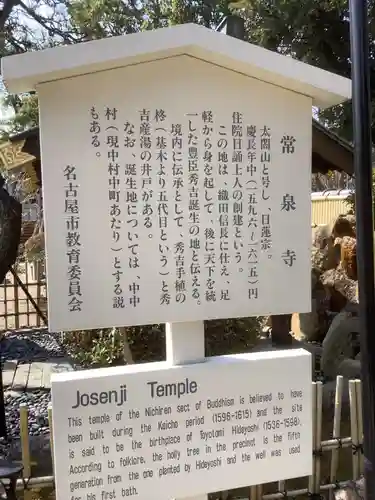 常泉寺
太閤山と号し、日蓮宗。
慶長年中（一五九六～一六一五）円
住院日誦上人の創建という。
この地は、織田信長に仕え、足
軽から身を起して、後に天下を統
一した豊臣秀吉誕生の地と伝える。
境内に伝承として、秀吉手植の
柊（基本より五代目という）と秀
吉産湯の井戸がある。
なお、誕生地については、中中
村（現中村中町あたり）とする説
もある。
名古屋市教育委員会
Josenji Temple
This temple of the Nichiren sect of Buddhism is believed to have
been built during the Keicho period (1596-1615) and the site
is said to be the birthplace of Toyotomi Hideyoshi (1536-1598).
According to folklore, the holly tree in the precinct is the fifth
generation from the one planted by Hideyoshi and the well was used
for his first bath.